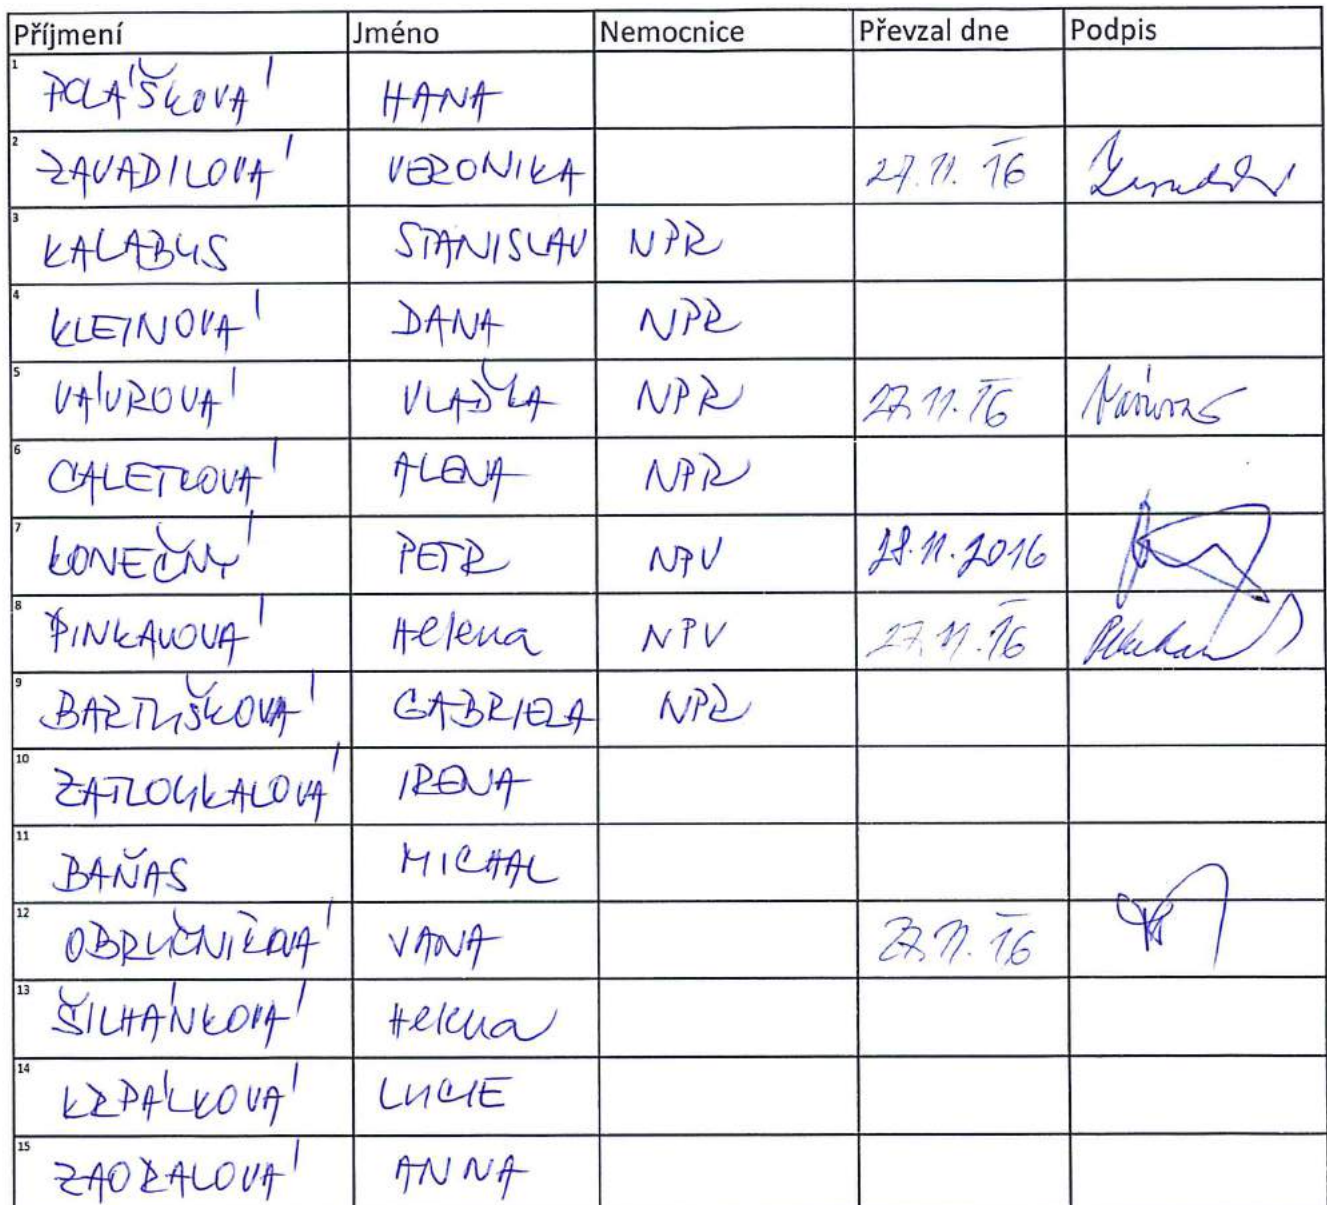 Příjmení Jméno Nemocnice Převzal dne Podpis
1 POLÁŠKOVÁ HANA
2 ZAVADILOVÁ VERONIKA 27.11.16
3 KALABUS STANISLAV NPR
4 KLEINOVÁ DANA NPR
5 VÁVROVÁ VLAĎKA NPR 27.11.16
6 CALETKOVÁ ALENA NPR
7 KONEČNÝ PETR NPV 28.11.2016
8 PINKAVOVÁ Helena NPV 27.11.16
9 BARTUŠKOVÁ GABRIELA NPR
10 ZATLOUKALOVÁ IRENA
11 BAŇAS MICHAL
12 OBRUČNÍKOVÁ VANA 27.11.16
13 ŠILHÁNKOVÁ Helena
14 KRPÁLKOVÁ LUCIE
15 ZAORALOVÁ ANNA